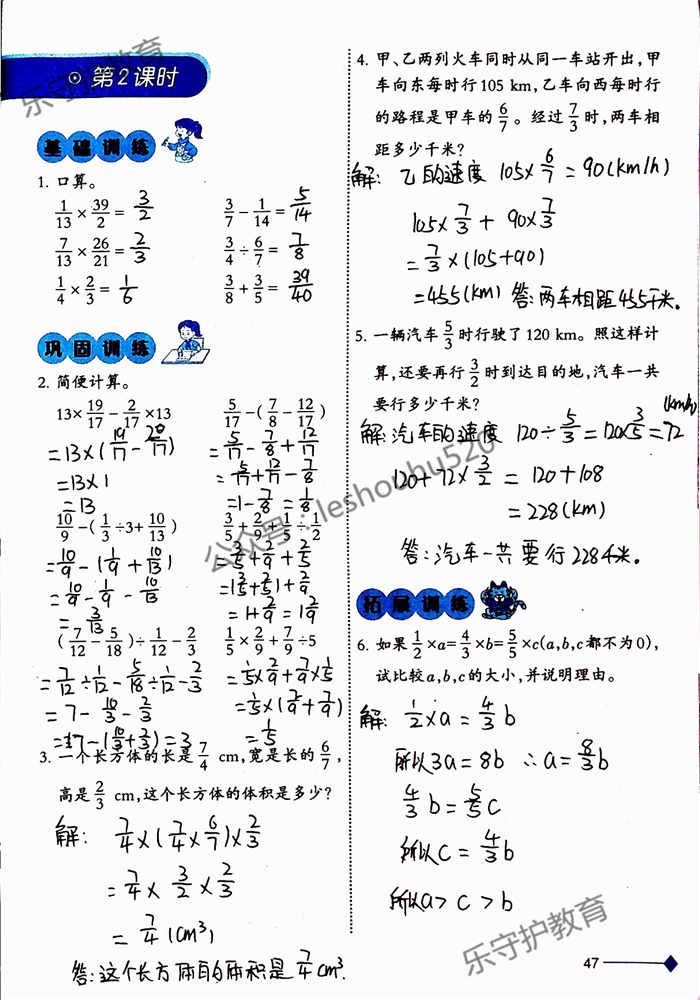 第2课时
基础训练
1. 口算。
1/13 × 39/2 = 3/2    3/7 - 1/14 = 5/14
7/13 × 26/21 = 2/3    3/4 ÷ 6/7 = 7/8
1/4 × 2/3 = 1/6    3/8 + 3/5 = 39/40
巩固训练
2. 简便计算。
13×19/17 - 2/17×13    5/17-(7/8-12/17)
=13×(19/17-2/17)    =5/17-7/8+12/17
=13×1    =5/17+12/17-7/8
=13    =1-7/8=1/8
10/9-(1/3÷3+10/13)    3/5+2/9+1/5÷1/2
=10/9-(1/9+10/13)    =3/5+2/9+2/5
=10/9-1/9-10/13    =(3/5+2/5)+2/9
=3/13    =1+2/9=1 2/9
(7/12-5/18)÷1/12-2/3    1/5×2/9+7/9÷5
=7/12÷1/12-5/18÷1/12-2/3    =1/5×2/9+7/9×1/5
=7-10/3-2/3    =1/5×(2/9+7/9)
=7-(10/3+2/3)=3    =1/5
3. 一个长方体的长是7/4 cm,宽是长的6/7,
高是2/3 cm,这个长方体的体积是多少?
解: 7/4×(7/4×6/7)×2/3
=7/4×3/2×2/3
=7/4(cm³)
答:这个长方体的体积是7/4cm³.
4. 甲、乙两列火车同时从同一车站开出,甲
车向东每时行105 km,乙车向西每时行
的路程是甲车的6/7。经过7/3时,两车相
距多少千米?
解:乙的速度 105×6/7=90(km/h)
105×7/3+90×7/3
=7/3×(105+90)
=455(km) 答:两车相距455千米.
5. 一辆汽车5/3时行驶了120 km。照这样计
算,还要再行3/2时到达目的地,汽车一共
要行多少千米?
解:汽车的速度 120÷5/3=120×3/5=72(km/h)
120+72×3/2=120+108
=228(km)
答:汽车一共要行228千米.
拓展训练
6. 如果1/2×a=4/3×b=5/5×c(a,b,c都不为0),
试比较a,b,c的大小,并说明理由。
解: 1/2×a=4/3b
所以3a=8b ∴a=8/3b
4/3b=5/5c
所以c=4/3b
所以a>c>b
47
乐守护教育
公众号:leshouhu520
乐守护教育